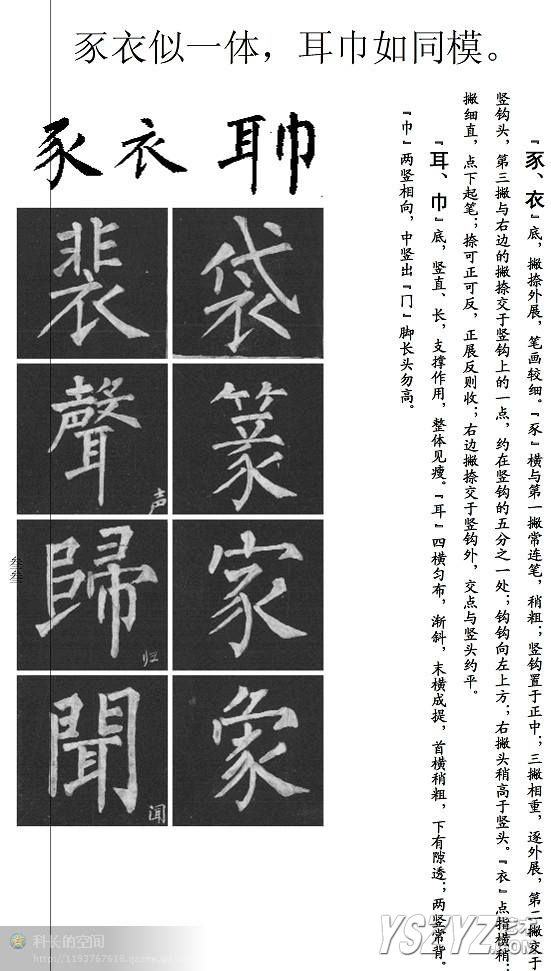 豕衣似一体，耳巾如同模。
豕 衣 耳 巾
『豕、衣』底，撇捺外展，笔画较细。『豕』横与第一撇常连笔，稍粗；竖钩置于正中；三撇相重，逐外展，第二撇交于
竖钩头，第三撇与右边的撇捺交于竖钩上的一点，约在竖钩的五分之一处；钩钩向左上方；右撇头稍高于竖头。『衣』点指横稍；
撇细直，点下起笔；捺可正可反，正展反则收；右边撇捺交于竖钩外，交点与竖头约平。
『耳、巾』底，竖直、长，支撑作用，整体见瘦。『耳』四横匀布，渐斜，末横成提，首横稍粗，下有隙透；两竖常背。
『巾』两竖相向，中竖出『冂』脚长头勿高。
袋
裴
篆
聲
声
家
歸
归
象
聞
闻
叁叁
科长的空间
YSZYZ